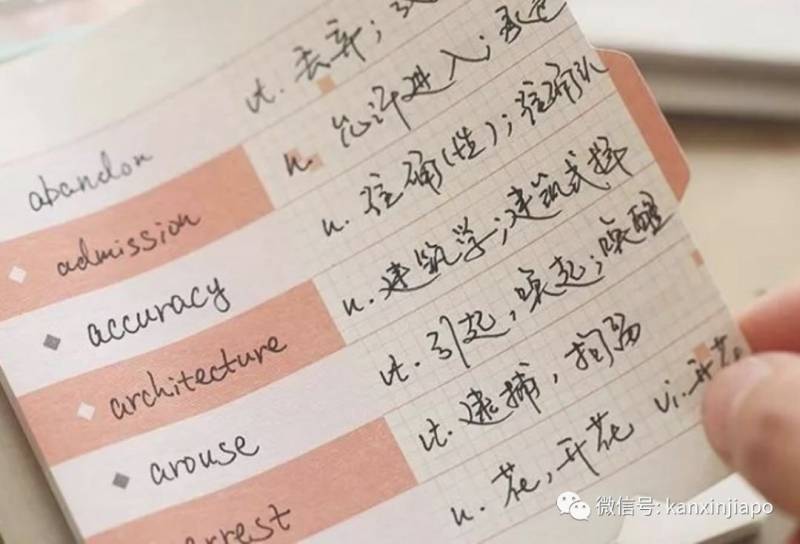 abandon vt. 去弃；
admission n. 允许进入；
accuracy n. 准确(性)；准确
architecture n. 建筑学；建筑式样
arouse vt. 引起，唤起；唤醒
arrest vt. 逮捕，拘留
n. 花，开花 vi. 开花
微信号: kanxinjiapo